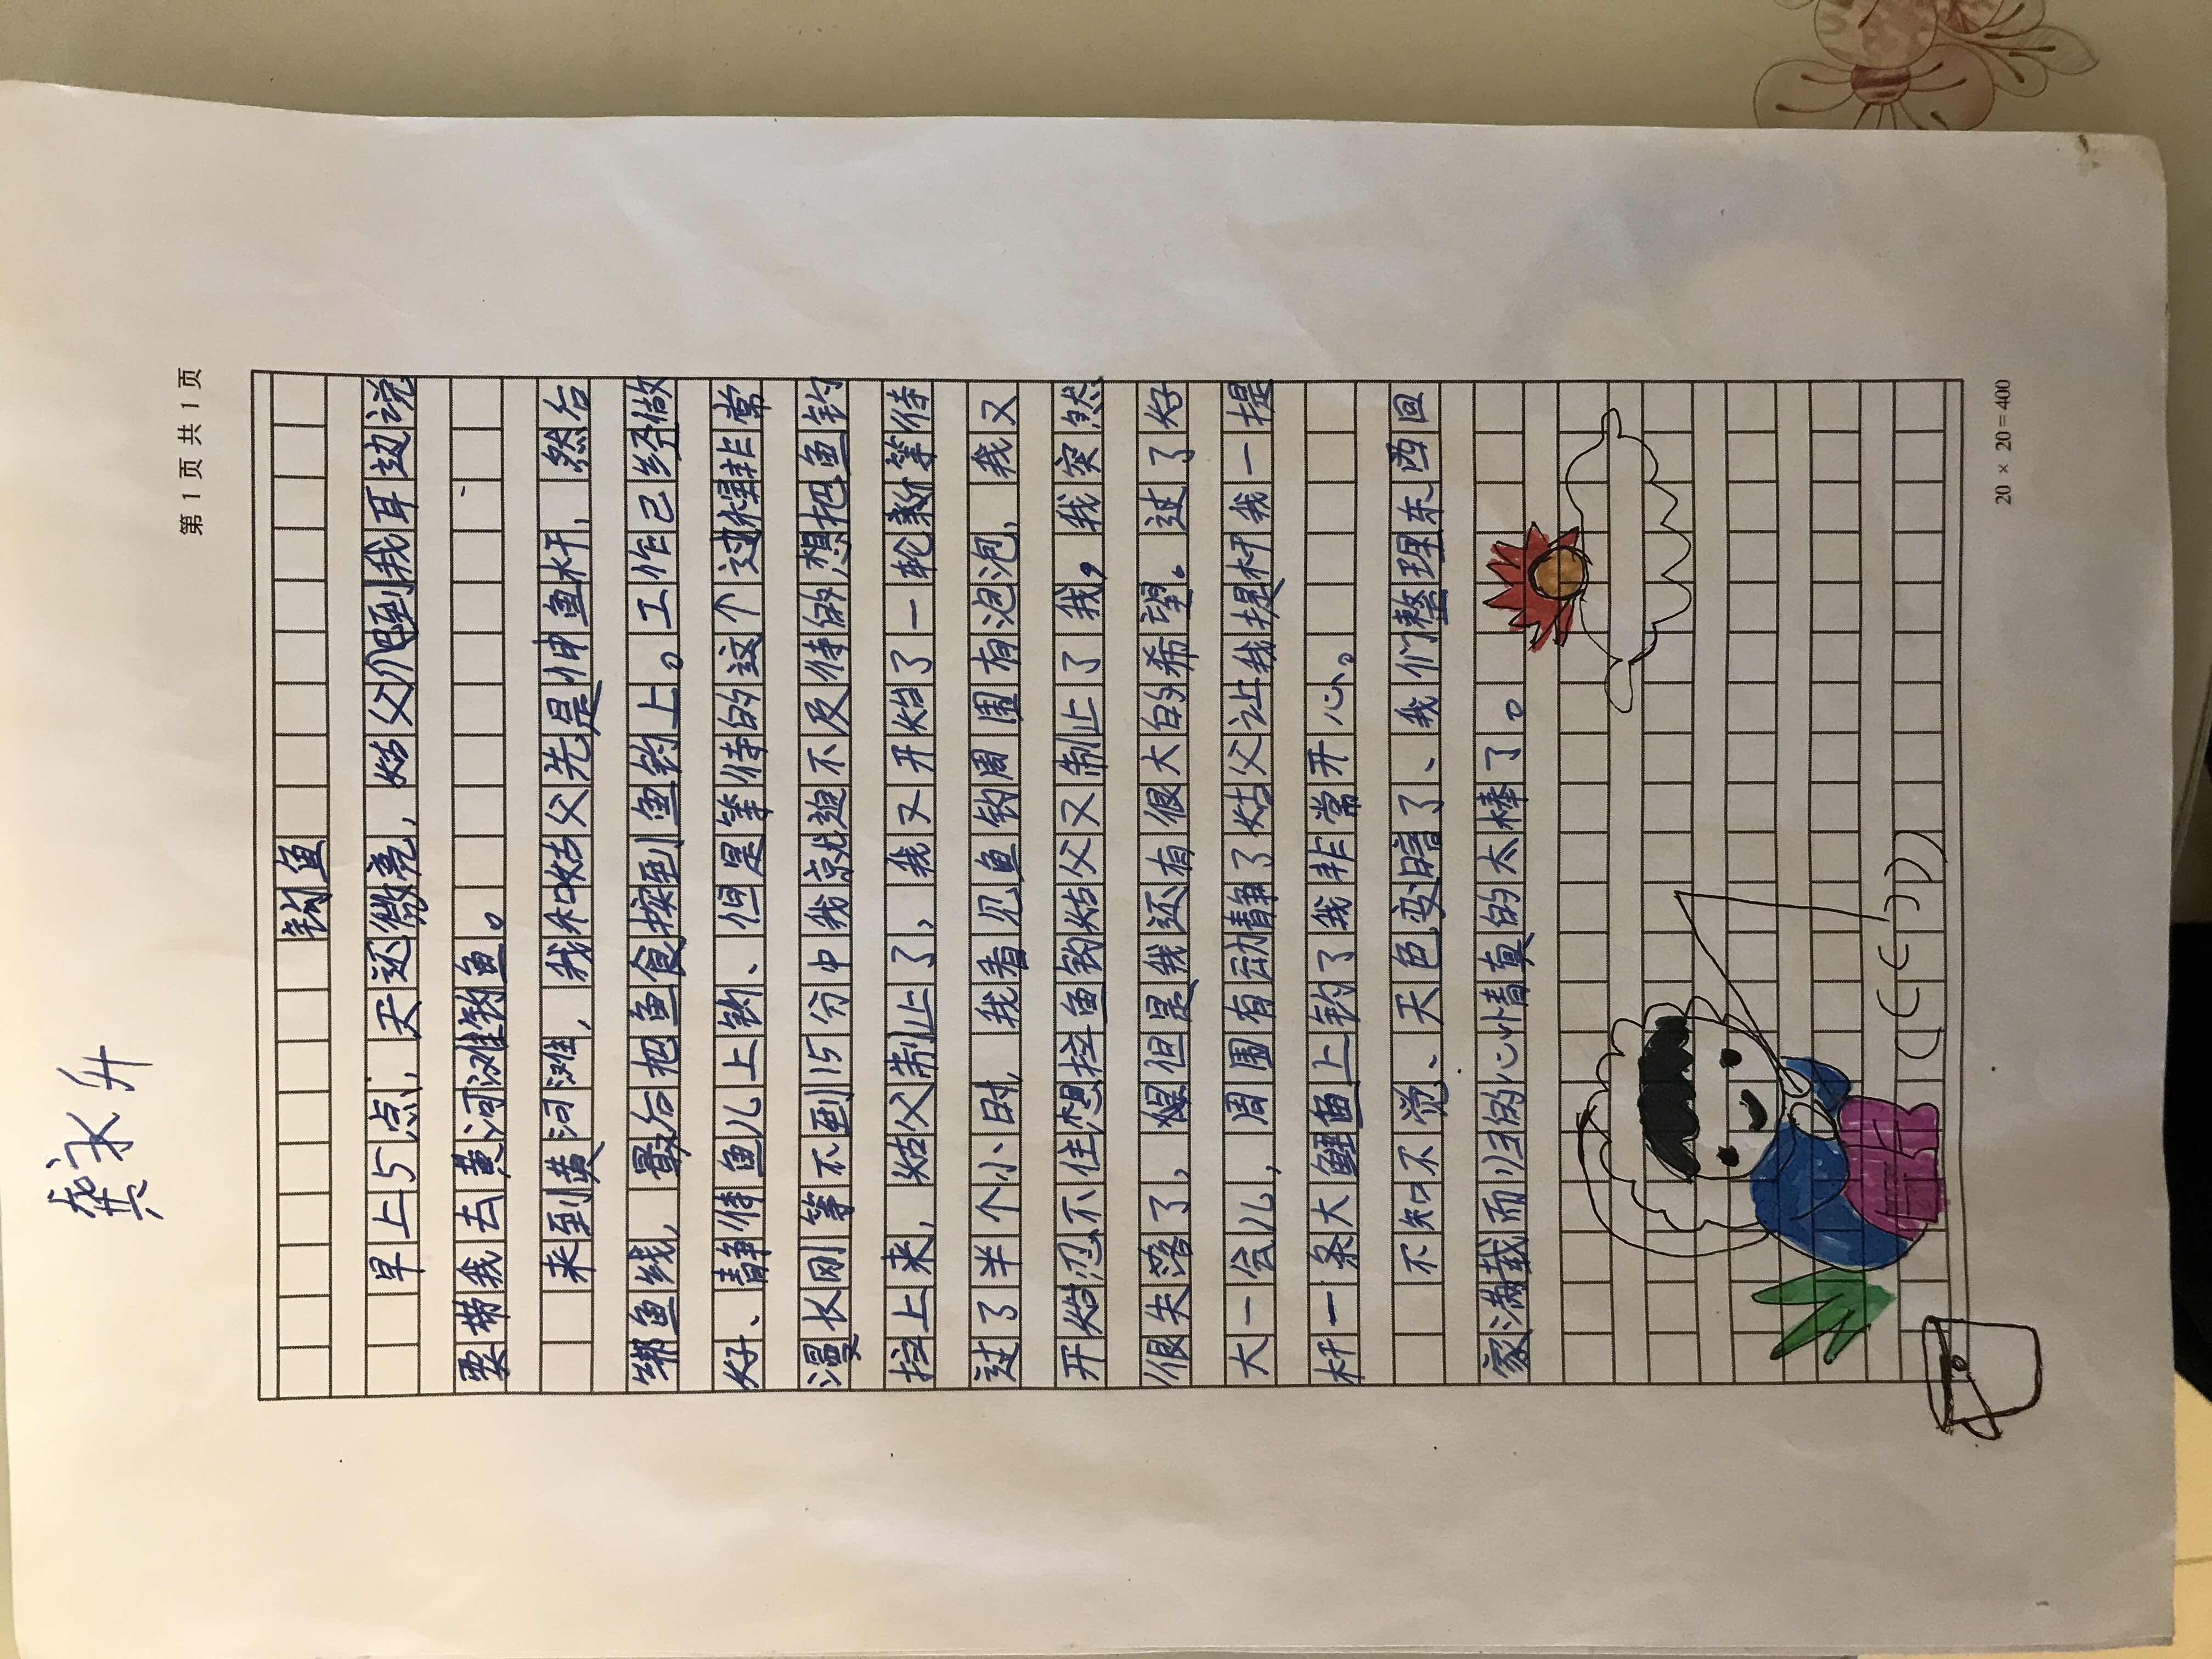 龚永升
第 1 页 共 1 页
钓鱼
早上5点,天还微亮,姑父爬到我耳边说
要带我去黄河滩钓鱼。
来到黄河滩,我和姑父先是伸鱼杆、然后
绑鱼线,最后把鱼食按到鱼钓上。工作已经做
好、静待鱼儿上钓、但是等待的这个过程非常
漫长刚等不到15分中我就迫不及待的想把鱼钓
拉上来,姑父制止了,我又开始了一轮新等待
过了半个小时,我看见鱼钓周围有泡泡、我又
开始忍不住想拉鱼钓姑父又制止了我,我突然
很失落了,但是我还有很大的希望。过了好
大一会儿,周围有动静了姑父让我提杆我一提
杆一条大鲤鱼上钓了我非常开心。
不知不觉、天色变暗了、我们整理东西回
家满载而归的心情真的太棒了。
20 × 20 = 400